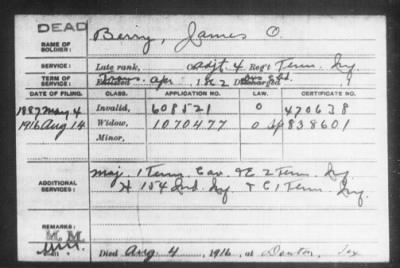 DEAD
NAME OF SOLDIER: Berry, James O.
SERVICE: Late rank, Adjt. 4 Reg't Tenn. Inf.
TERM OF SERVICE: Enlisted Apr 1862 Discharged
DATE OF FILING. CLASS. APPLICATION NO. LAW. CERTIFICATE NO.
1887 May 4 Invalid, 608521 O 470638
1916 Aug 14 Widow, 1070477 O 838601
Minor,
ADDITIONAL SERVICES: Maj. 1 Tenn. Cav. & E 2 Tenn. Inf.
H 154 Ind. Inf. & C 1 Tenn. Inf.
REMARKS:
Died Aug. 4, 1916, at Denton, Tex